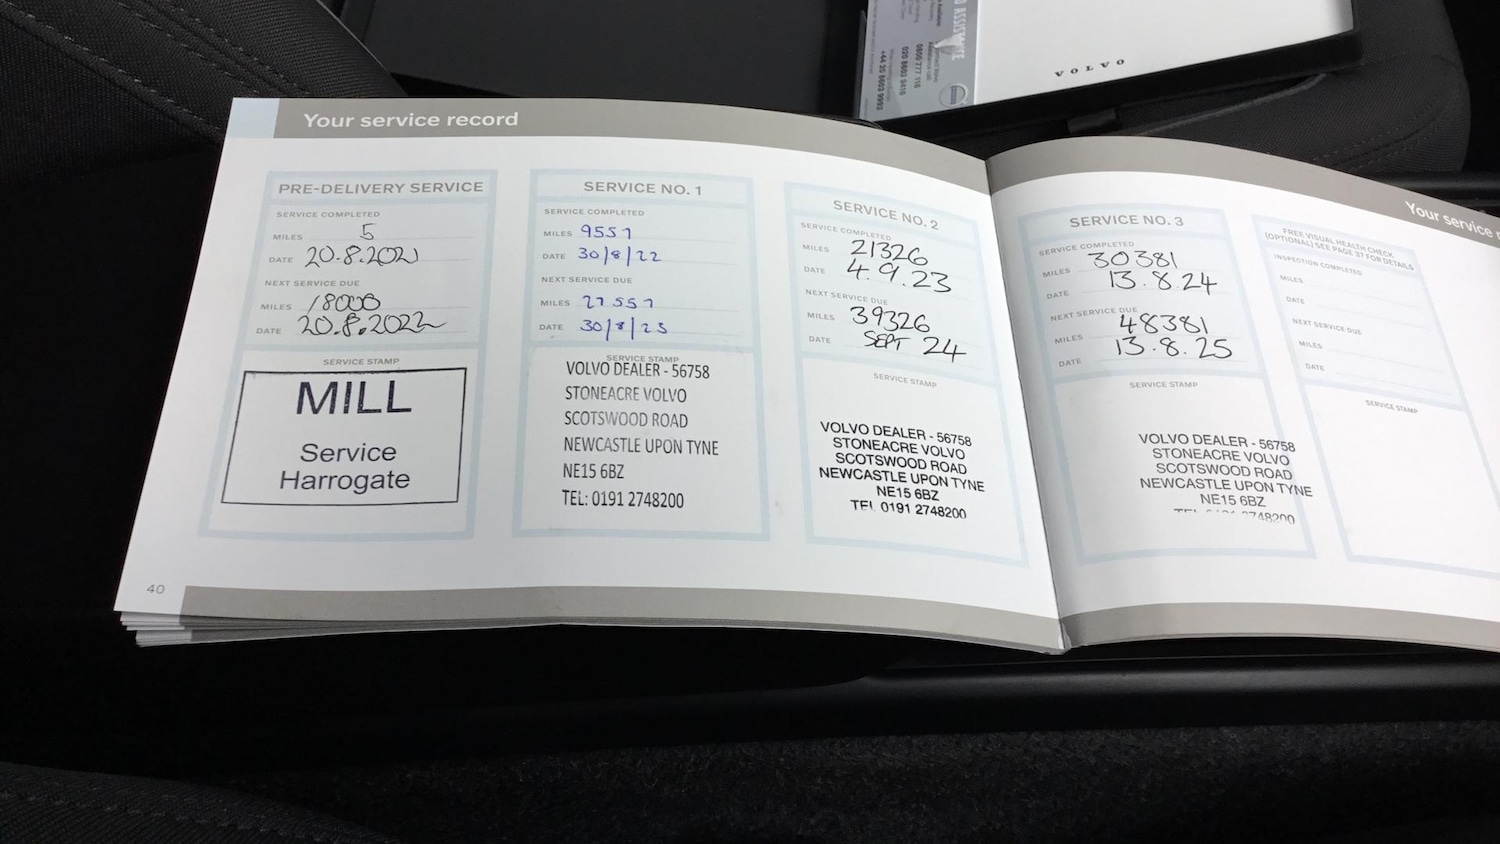 Your service record
PRE-DELIVERY SERVICE
SERVICE COMPLETED
MILES 5
DATE 20.8.2021
NEXT SERVICE DUE
MILES 18000
DATE 20.8.2022
SERVICE STAMP
MILL
Service
Harrogate
SERVICE NO. 1
SERVICE COMPLETED
MILES 9557
DATE 30/8/22
NEXT SERVICE DUE
MILES 27557
DATE 30/8/23
SERVICE STAMP
VOLVO DEALER - 56758
STONEACRE VOLVO
SCOTSWOOD ROAD
NEWCASTLE UPON TYNE
NE15 6BZ
TEL: 0191 2748200
SERVICE NO. 2
SERVICE COMPLETED
MILES 21326
DATE 4.9.23
NEXT SERVICE DUE
MILES 39326
DATE SEPT 24
SERVICE STAMP
VOLVO DEALER - 56758
STONEACRE VOLVO
SCOTSWOOD ROAD
NEWCASTLE UPON TYNE
NE15 6BZ
TEL 0191 2748200
40
Your service
SERVICE NO. 3
SERVICE COMPLETED
MILES 30381
DATE 13.8.24
NEXT SERVICE DUE
MILES 48381
DATE 13.8.25
SERVICE STAMP
VOLVO DEALER - 56758
STONEACRE VOLVO
SCOTSWOOD ROAD
NEWCASTLE UPON TYNE
NE15 6BZ
2748200
FREE VISUAL HEALTH CHECK
(OPTIONAL) SEE PAGE 37 FOR DETAILS
INSPECTION COMPLETED
MILES
DATE
NEXT SERVICE DUE
MILES
DATE
SERVICE STAMP
VOLVO
0800 777 116
020 8603 9416
+44 20 8603 9993